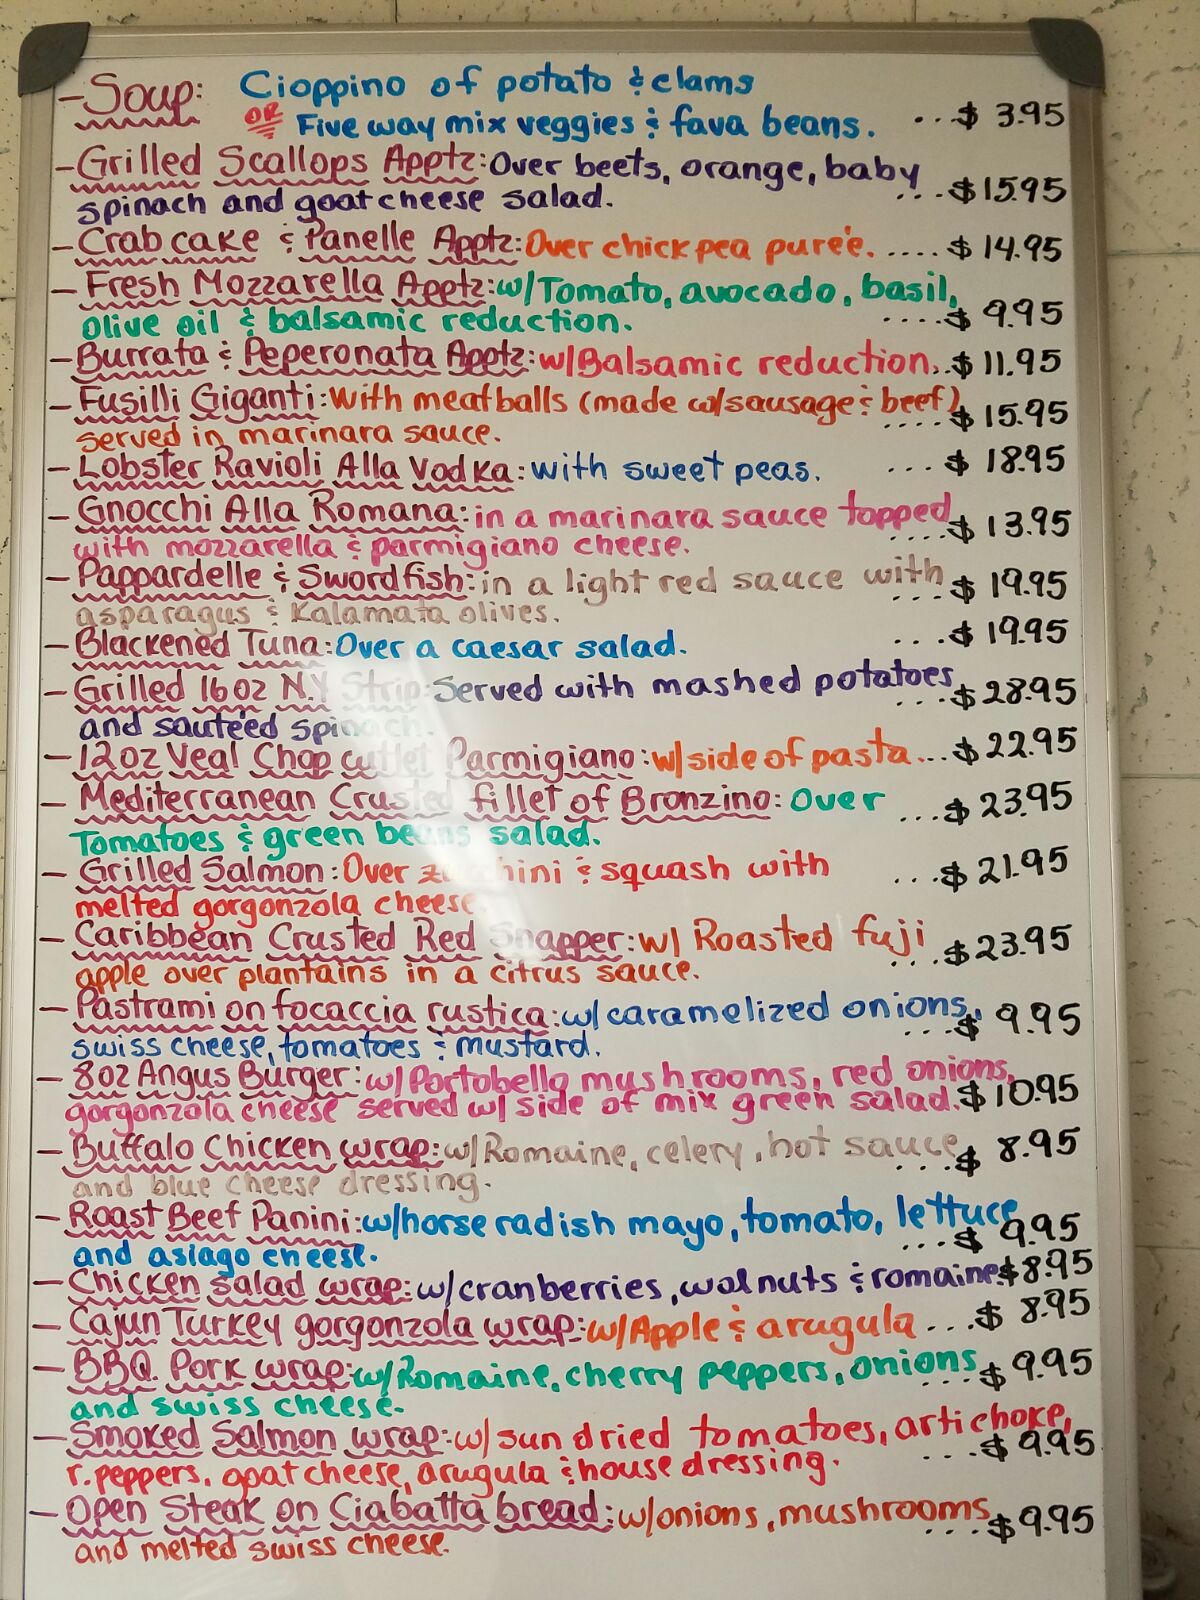 - Soup: Cioppino of potato & clams
OR Five way mix veggies & fava beans. ...$ 3.95
- Grilled Scallops Apptz: Over beets, orange, baby
spinach and goat cheese salad. ...$15.95
- Crab cake & Panelle Apptz: Over chick pea pureé. ....$ 14.95
- Fresh Mozzarella Apptz: w/Tomato, avocado, basil,
olive oil & balsamic reduction. ....$ 9.95
- Burrata & Peperonata Apptz: w/Balsamic reduction...$ 11.95
- Fusilli Giganti: With meatballs (made w/sausage & beef)
served in marinara sauce. ....$ 15.95
- Lobster Ravioli Alla Vodka: with sweet peas. ...$ 18.95
- Gnocchi Alla Romana: in a marinara sauce topped
with mozzarella & parmigiano cheese. ....$ 13.95
- Pappardelle & Swordfish: in a light red sauce with
asparagus & Kalamata olives. ...$ 19.95
- Blackened Tuna: Over a caesar salad. ...$ 19.95
- Grilled 16oz N.Y Strip: Served with mashed potatoes
and sauteéd spinach. ...$28.95
- 12oz Veal Chop cutlet Parmigiano: w/side of pasta...$ 22.95
- Mediterranean Crusted fillet of Bronzino: Over
Tomatoes & green beans salad. ...$ 23.95
- Grilled Salmon: Over zucchini & squash with
melted gorgonzola cheese. ...$ 21.95
- Caribbean Crusted Red Snapper: w/ Roasted fuji
apple over plantains in a citrus sauce. ...$23.95
- Pastrami on focaccia rustica: w/caramelized onions,
swiss cheese, tomatoes & mustard. ...$ 9.95
- 8oz Angus Burger: w/Portobello mushrooms, red onions,
gorgonzola cheese served w/ side of mix green salad. $10.95
- Buffalo Chicken wrap: w/Romaine, celery, hot sauce
and blue cheese dressing. ....$ 8.95
- Roast Beef Panini: w/horse radish mayo, tomato, lettuce
and asiago cheese. ...$ 9.95
- Chicken salad wrap: w/cranberries, walnuts & romaine.$8.95
- Cajun Turkey gorgonzola wrap: w/Apple & arugula ...$ 8.95
- BBQ Pork wrap: w/Romaine, cherry peppers, onions
and swiss cheese. ....$ 9.95
- Smoked Salmon wrap: w/ sun dried tomatoes, artichoke,
r.peppers, goat cheese, arugula & house dressing. ...$ 9.95
- Open Steak on Ciabatta bread: w/onions, mushrooms
and melted swiss cheese. ....$9.95